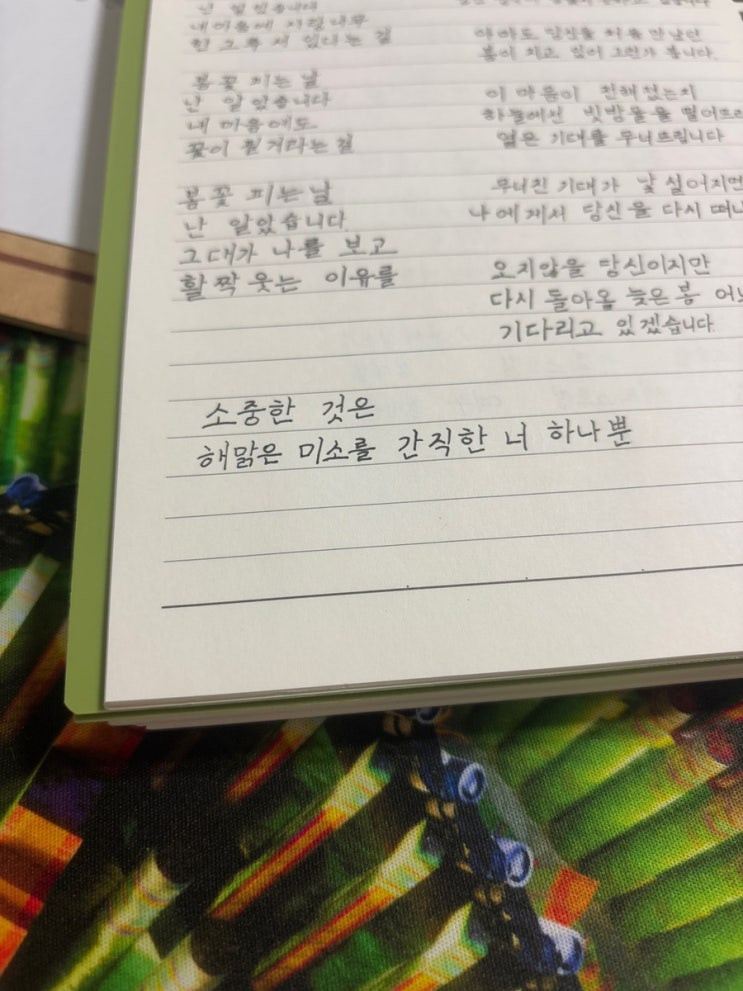 난 알았습니다
내 마음에 사랑나무
한 그루 서 있다는 걸
봄꽃 지는 날
난 알았습니다
내 마음에도
꽃이 핀거라는 걸
봄꽃 피는 날
난 알았습니다
그대가 나를 보고
활짝 웃는 이유를
아마도 당신을 처음 만났던
봄이 지고 있어 그런가 봅니다.
이 마음이 전해졌는지
하늘에선 빗방울을
엷은 기대를 무너뜨립니다
무너진 기대가 낯설어지면
나에게서 당신을 다시
오지않을 당신이지만
다시 돌아올 늦은 봄
기다리고 있겠습니다.
소중한 것은
해맑은 미소를 간직한 너 하나뿐